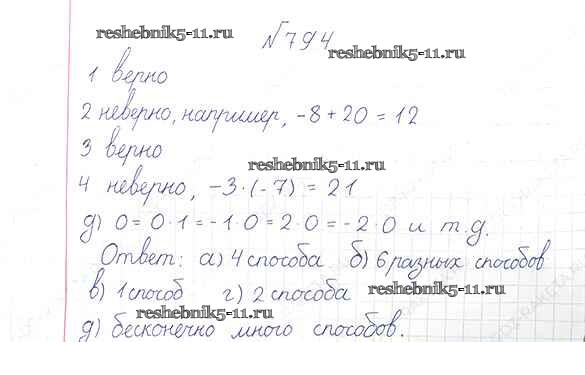 reshebnik5-11.ru
№794
reshebnik5-11.ru
1 верно
2 неверно, например, -8 + 20 = 12
3 верно
reshebnik5-11.ru
4 неверно, -3 · (-7) = 21
д) 0 = 0 · 1 = -1 · 0 = 2 · 0 = -2 · 0 и т.д.
Ответ: а) 4 способа б) 6 разных способов
в) 1 способ г) 2 способа reshebnik5-11.ru
reshebnik5-11.ru
д) бесконечно много способов.